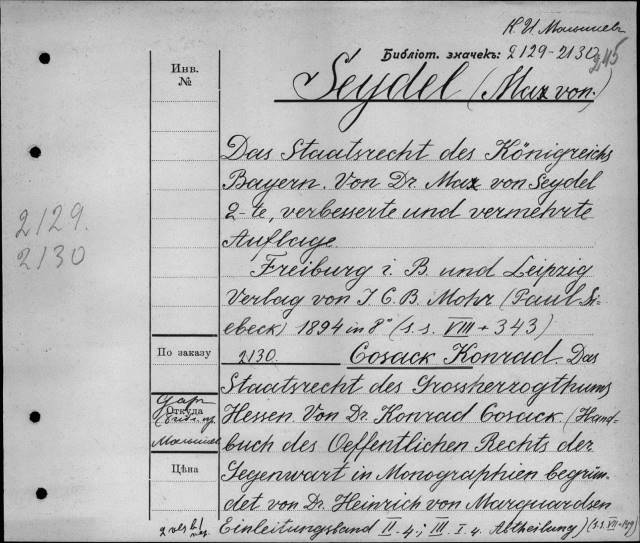 К. И. Малышев
Библіот. значекъ: 2129-2130
245
Инв. №
Seydel (Max von.)
Das Staatsrecht des Königreichs
Bayern. Von Dr. Max von Seydel
2-te, verbesserte und vermehrte
Auflage.
2129.
2130
Freiburg i. B. und Leipzig
Verlag von J. C. B. Mohr (Paul Si-
ebeck) 1894 in 8° (s.s. VIII + 343)
По заказу
2130. Cosack Konrad. Das
Staatsrecht des Grossherzogthums
Даръ
Откуда
Hessen. Von Dr. Konrad Cosack. (Hand-
Малышев
buch des Oeffentlichen Rechts der
Цѣна
Gegenwart in Monographien begrün-
det von Dr. Heinrich von Marquardsen
Einleitungsband II. 4.; III. I. 4. Abtheilung)